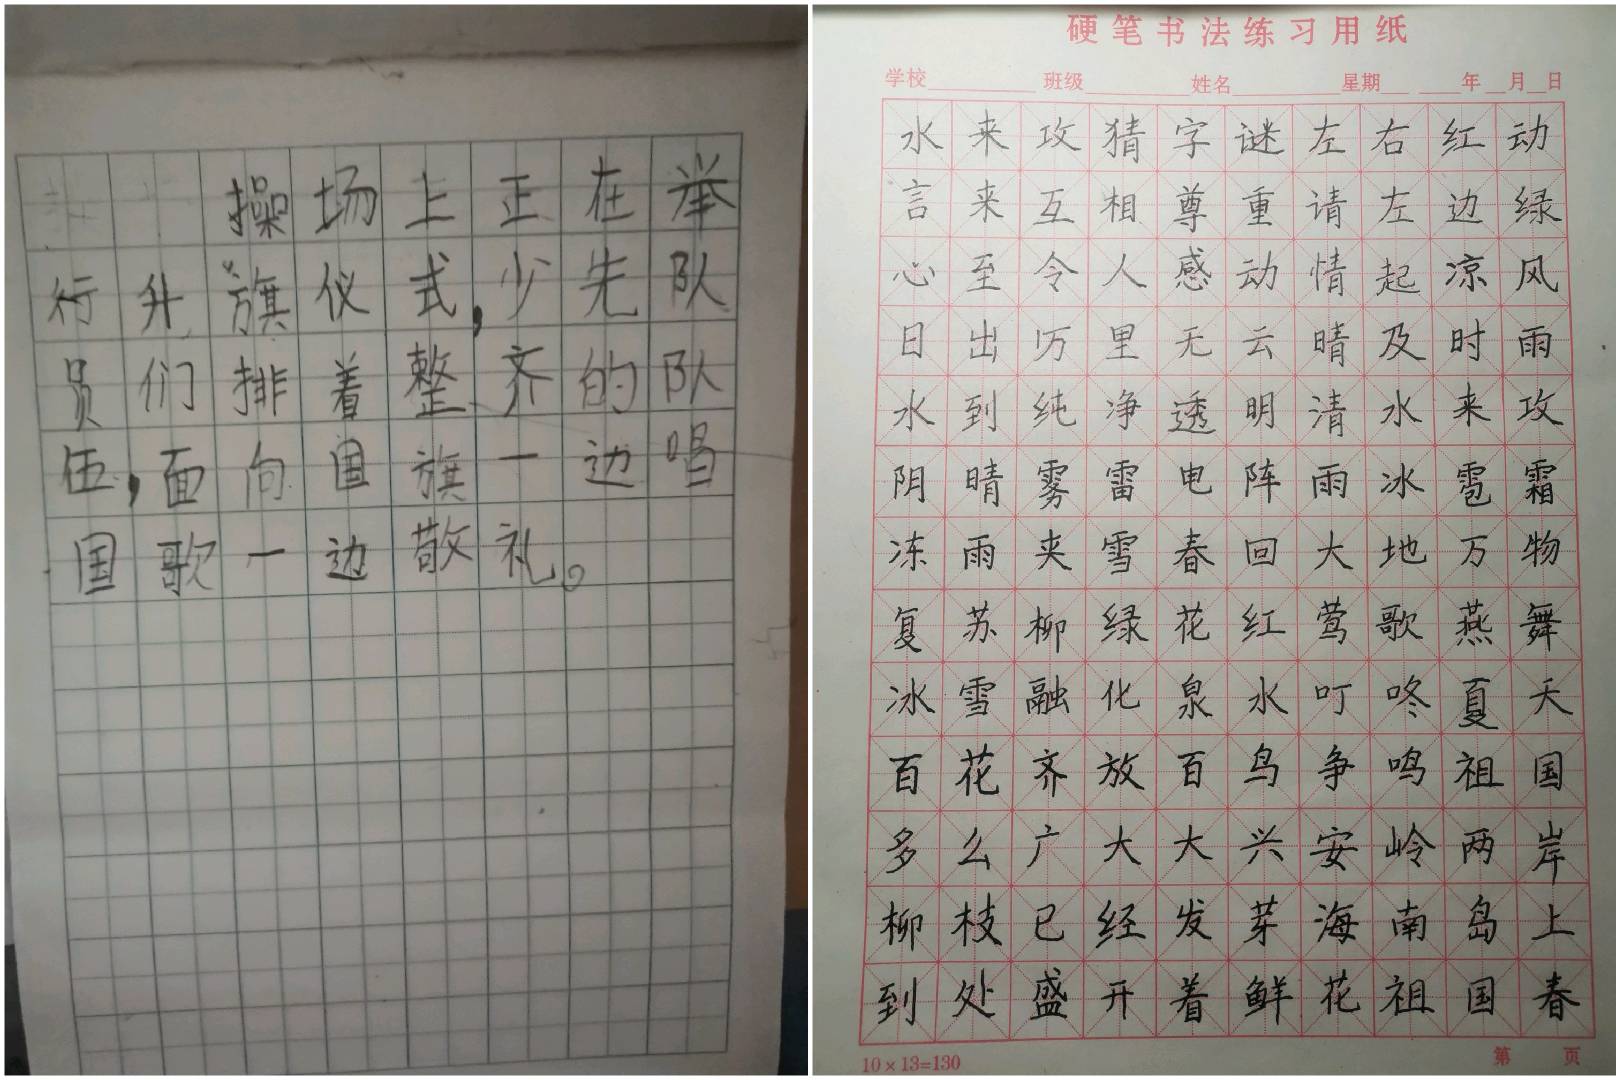 操场上正在举
行升旗仪式,少先队
员们排着整齐的队
伍,面向国旗一边唱
国歌一边敬礼。
硬笔书法练习用纸
学校 班级 姓名 星期 年 月 日
水来攻猜字谜左右红动
言来互相尊重请左边绿
心至令人感动情起凉风
日出万里无云晴及时雨
水到纯净透明清水来攻
阴晴雾雷电阵雨冰雹霜
冻雨夹雪春回大地万物
复苏柳绿花红莺歌燕舞
冰雪融化泉水叮咚夏天
百花齐放百鸟争鸣祖国
多么广大大兴安岭两岸
柳枝已经发芽海南岛上
到处盛开着鲜花祖国春
10×13=130 第 页